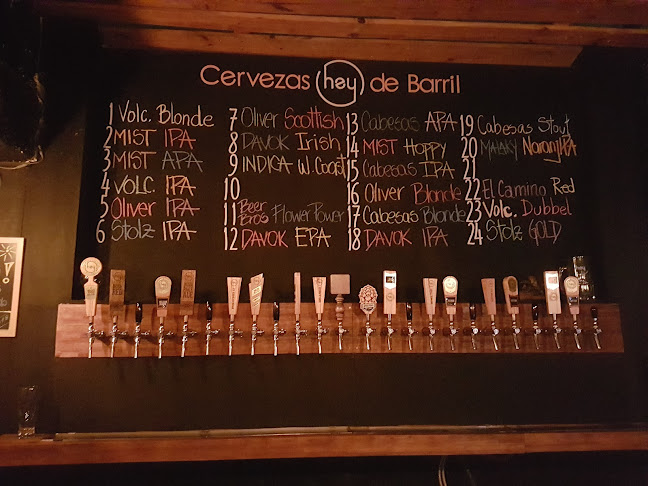 Cervezas hoy de Barril
1 Volc. Blonde
2 MIST IPA
3 MIST APA
4 VOLC. IPA
5 Oliver IPA
6 Stolz IPA
7 Oliver Scottish
8 DAVOK Irish
9 INDICA W. Coast
10
11 Beer Bros Flower Power
12 DAVOK EPA
13 Cabesas APA
14 MIST Hoppy
15 Cabesas IPA
16 Oliver Blonde
17 Cabesas Blonde
18 DAVOK IPA
19 Cabesas Stout
20 MALAKY NaranjIPA
21
22 El Camino Red
23 Volc. Dubbel
24 Stolz GOLD